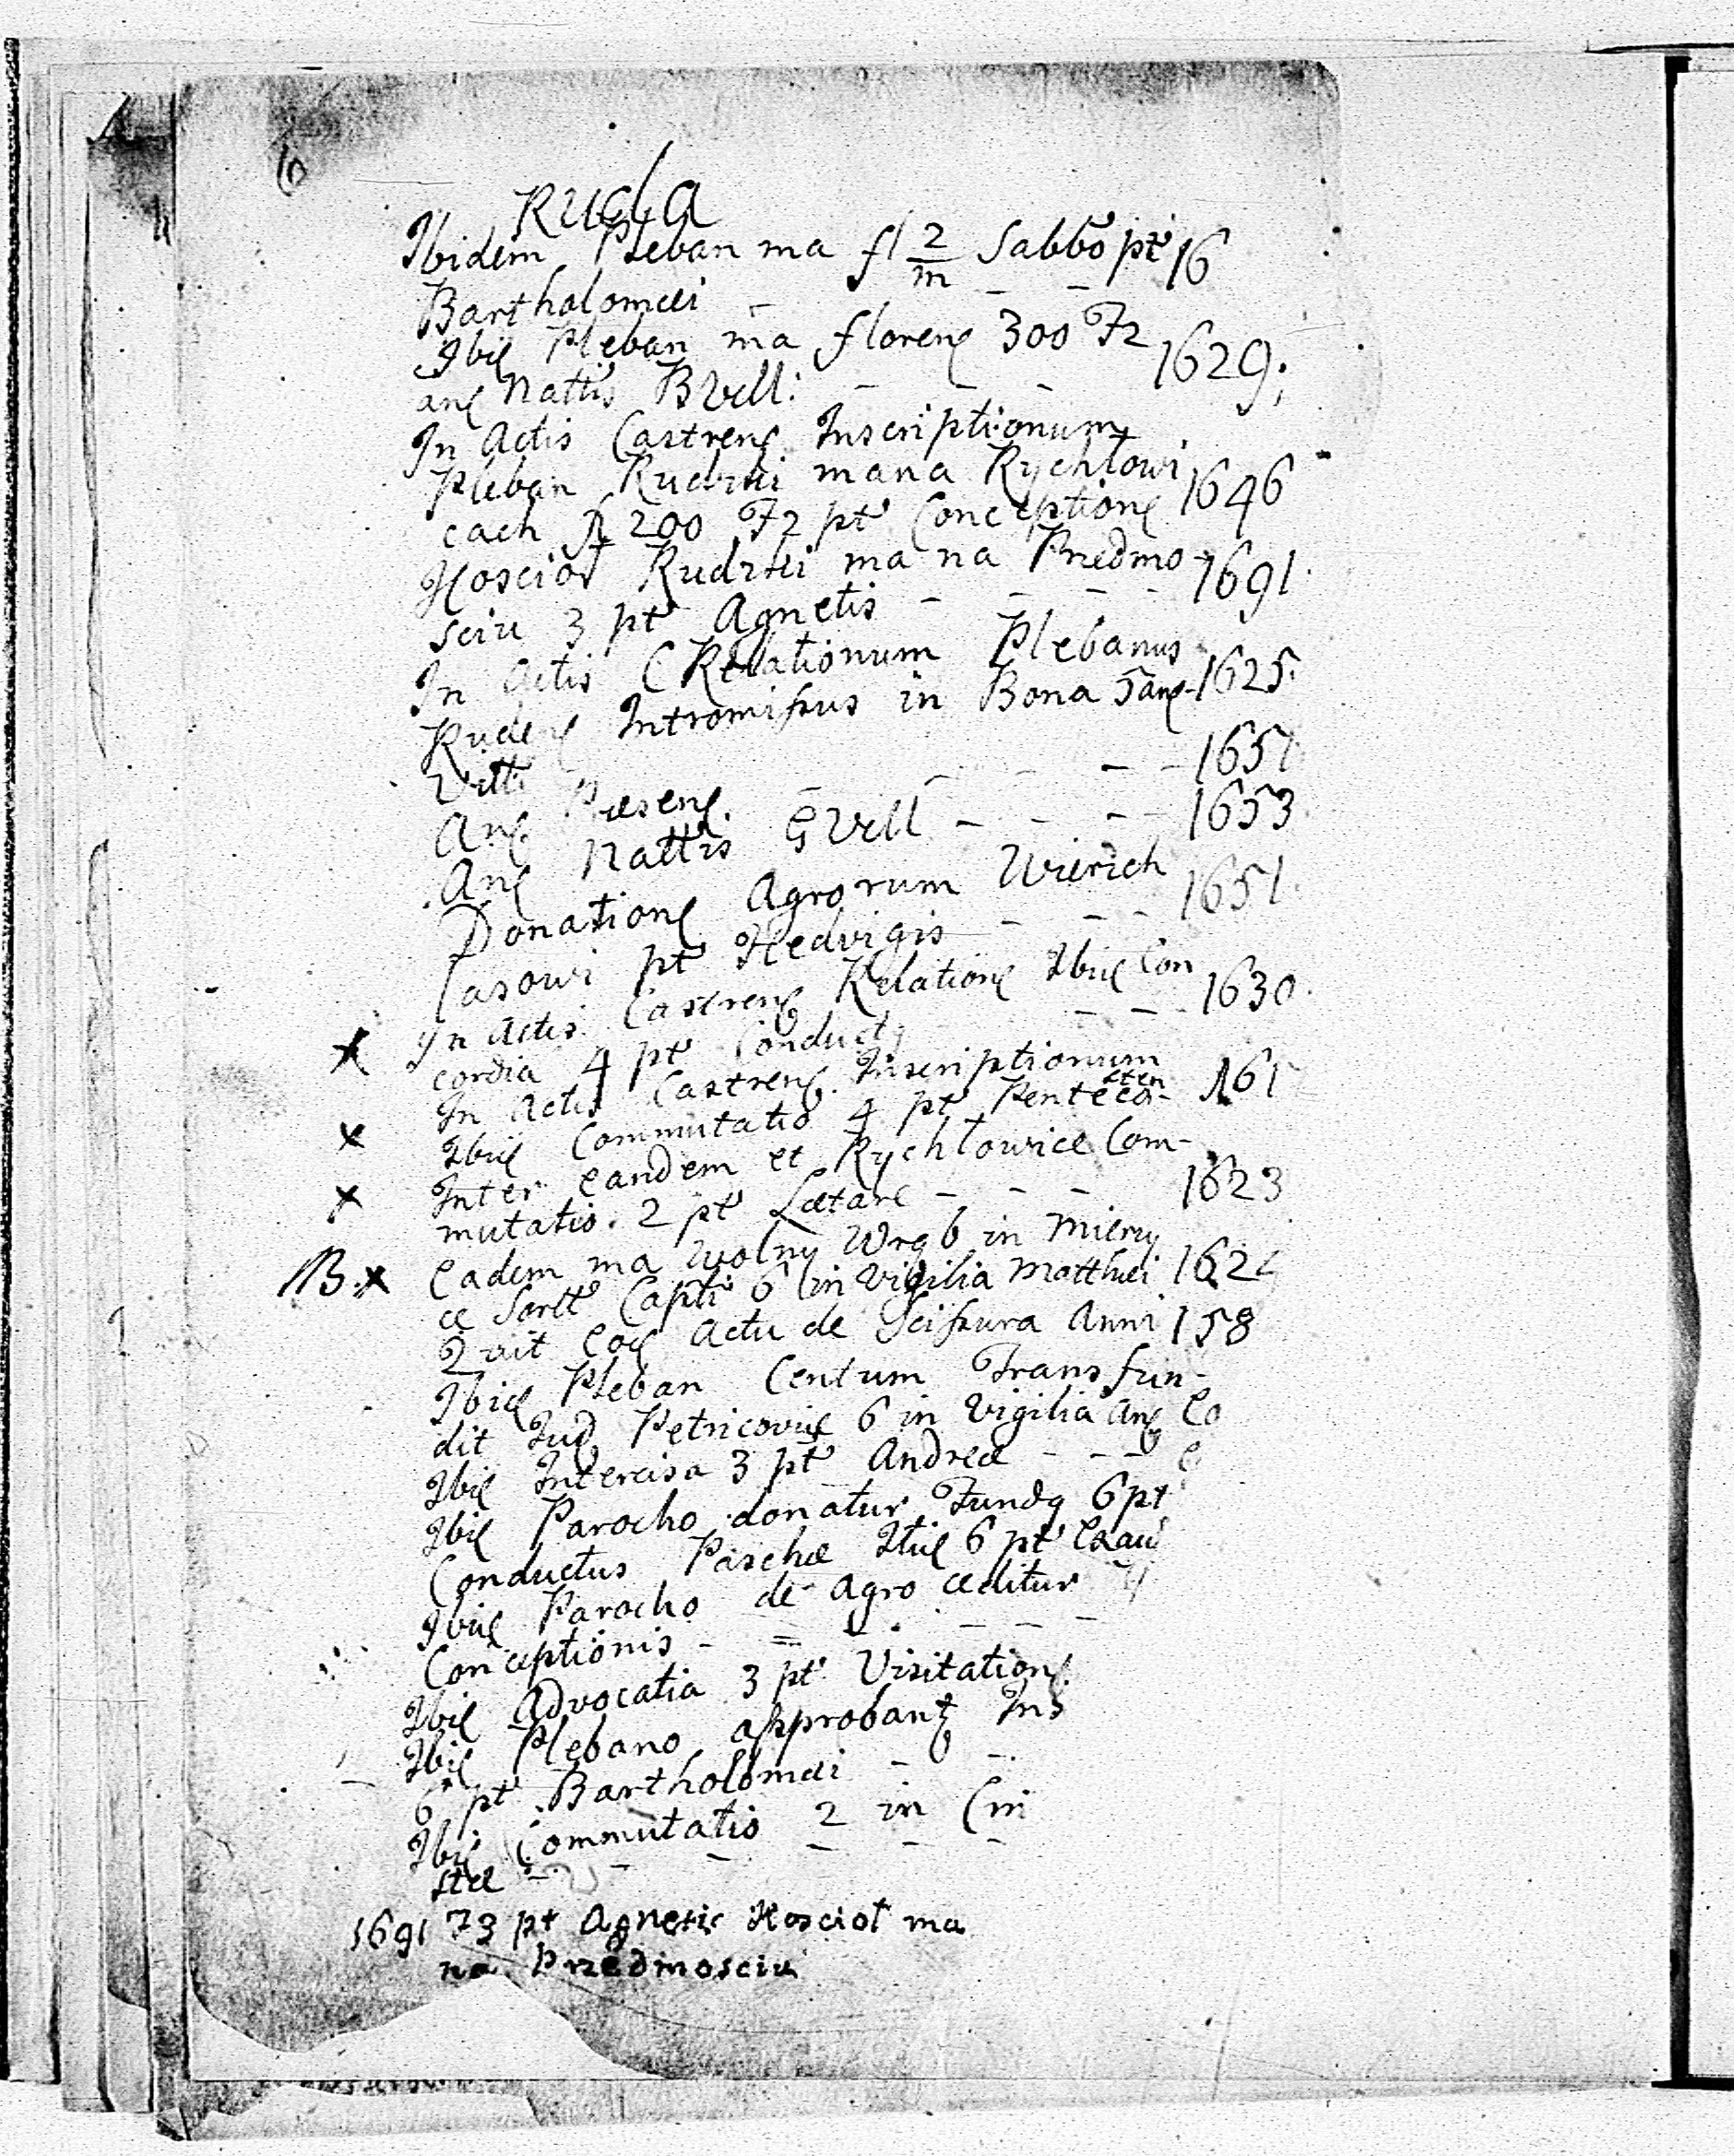 6
Ruda
Ibidem Pleban ma fl 2/m Sabbo pt 16
Bartholomæi - - -
Ibid Pleban ma floren 300 F2
an Nattis BVMl: - - - 1629;
In Actis Castren Inscriptionum
Pleban Rudzki ma na Rychłowi
cach fl 200 F2 pt Conception 1646
Koscioł Rudzki ma na Przedmo
sciu 3 pt Agnetis - - - - 1691
In Actis C Relationum Plebanus
Ruden Intromissus in Bona San 1625.
Viti - - - - - 1651
An Præsen
An Nattis GVMl - - - - 1653
Donation Agrorum Wierich
lasowi pt Hedvigis - - - 1651.
x In Actis Castren Relation Ibid Con
cordia 4 pt Conduct - - 1630.
In Actis Castren Inscriptionum
x Ibid Commutatio 4 pt Pentecosten 161
x Inter eandem et Rychłowice Com-
mutatio. 2 pt Lætare - - - 1623
NB. x Eadem ma wolny Wrąb in
Capti 6 in Vigilia Matthæi 162
Quit Eod Actu de Scissura Anni 158
Ibid Pleban Centum Transfun-
dit Jud Petricovien 6 in Vigilia An
Ibid Intercisa 3 pt Andreæ - - -
Ibid Parocho donatur Fund 6 pt
Conductus Paschæ Itid 6 pt
Ibid Parocho de Agro ceditur
Conceptionis - = - - - -
Ibid Advocatia 3 pt Visitation
Ibid Plebano approbant
6 pt Bartholomæi - -
Ibid Commutatio 2 in
- - - - -
1691 73 pt Agnetis Kosciol ma
na Przedmosciu